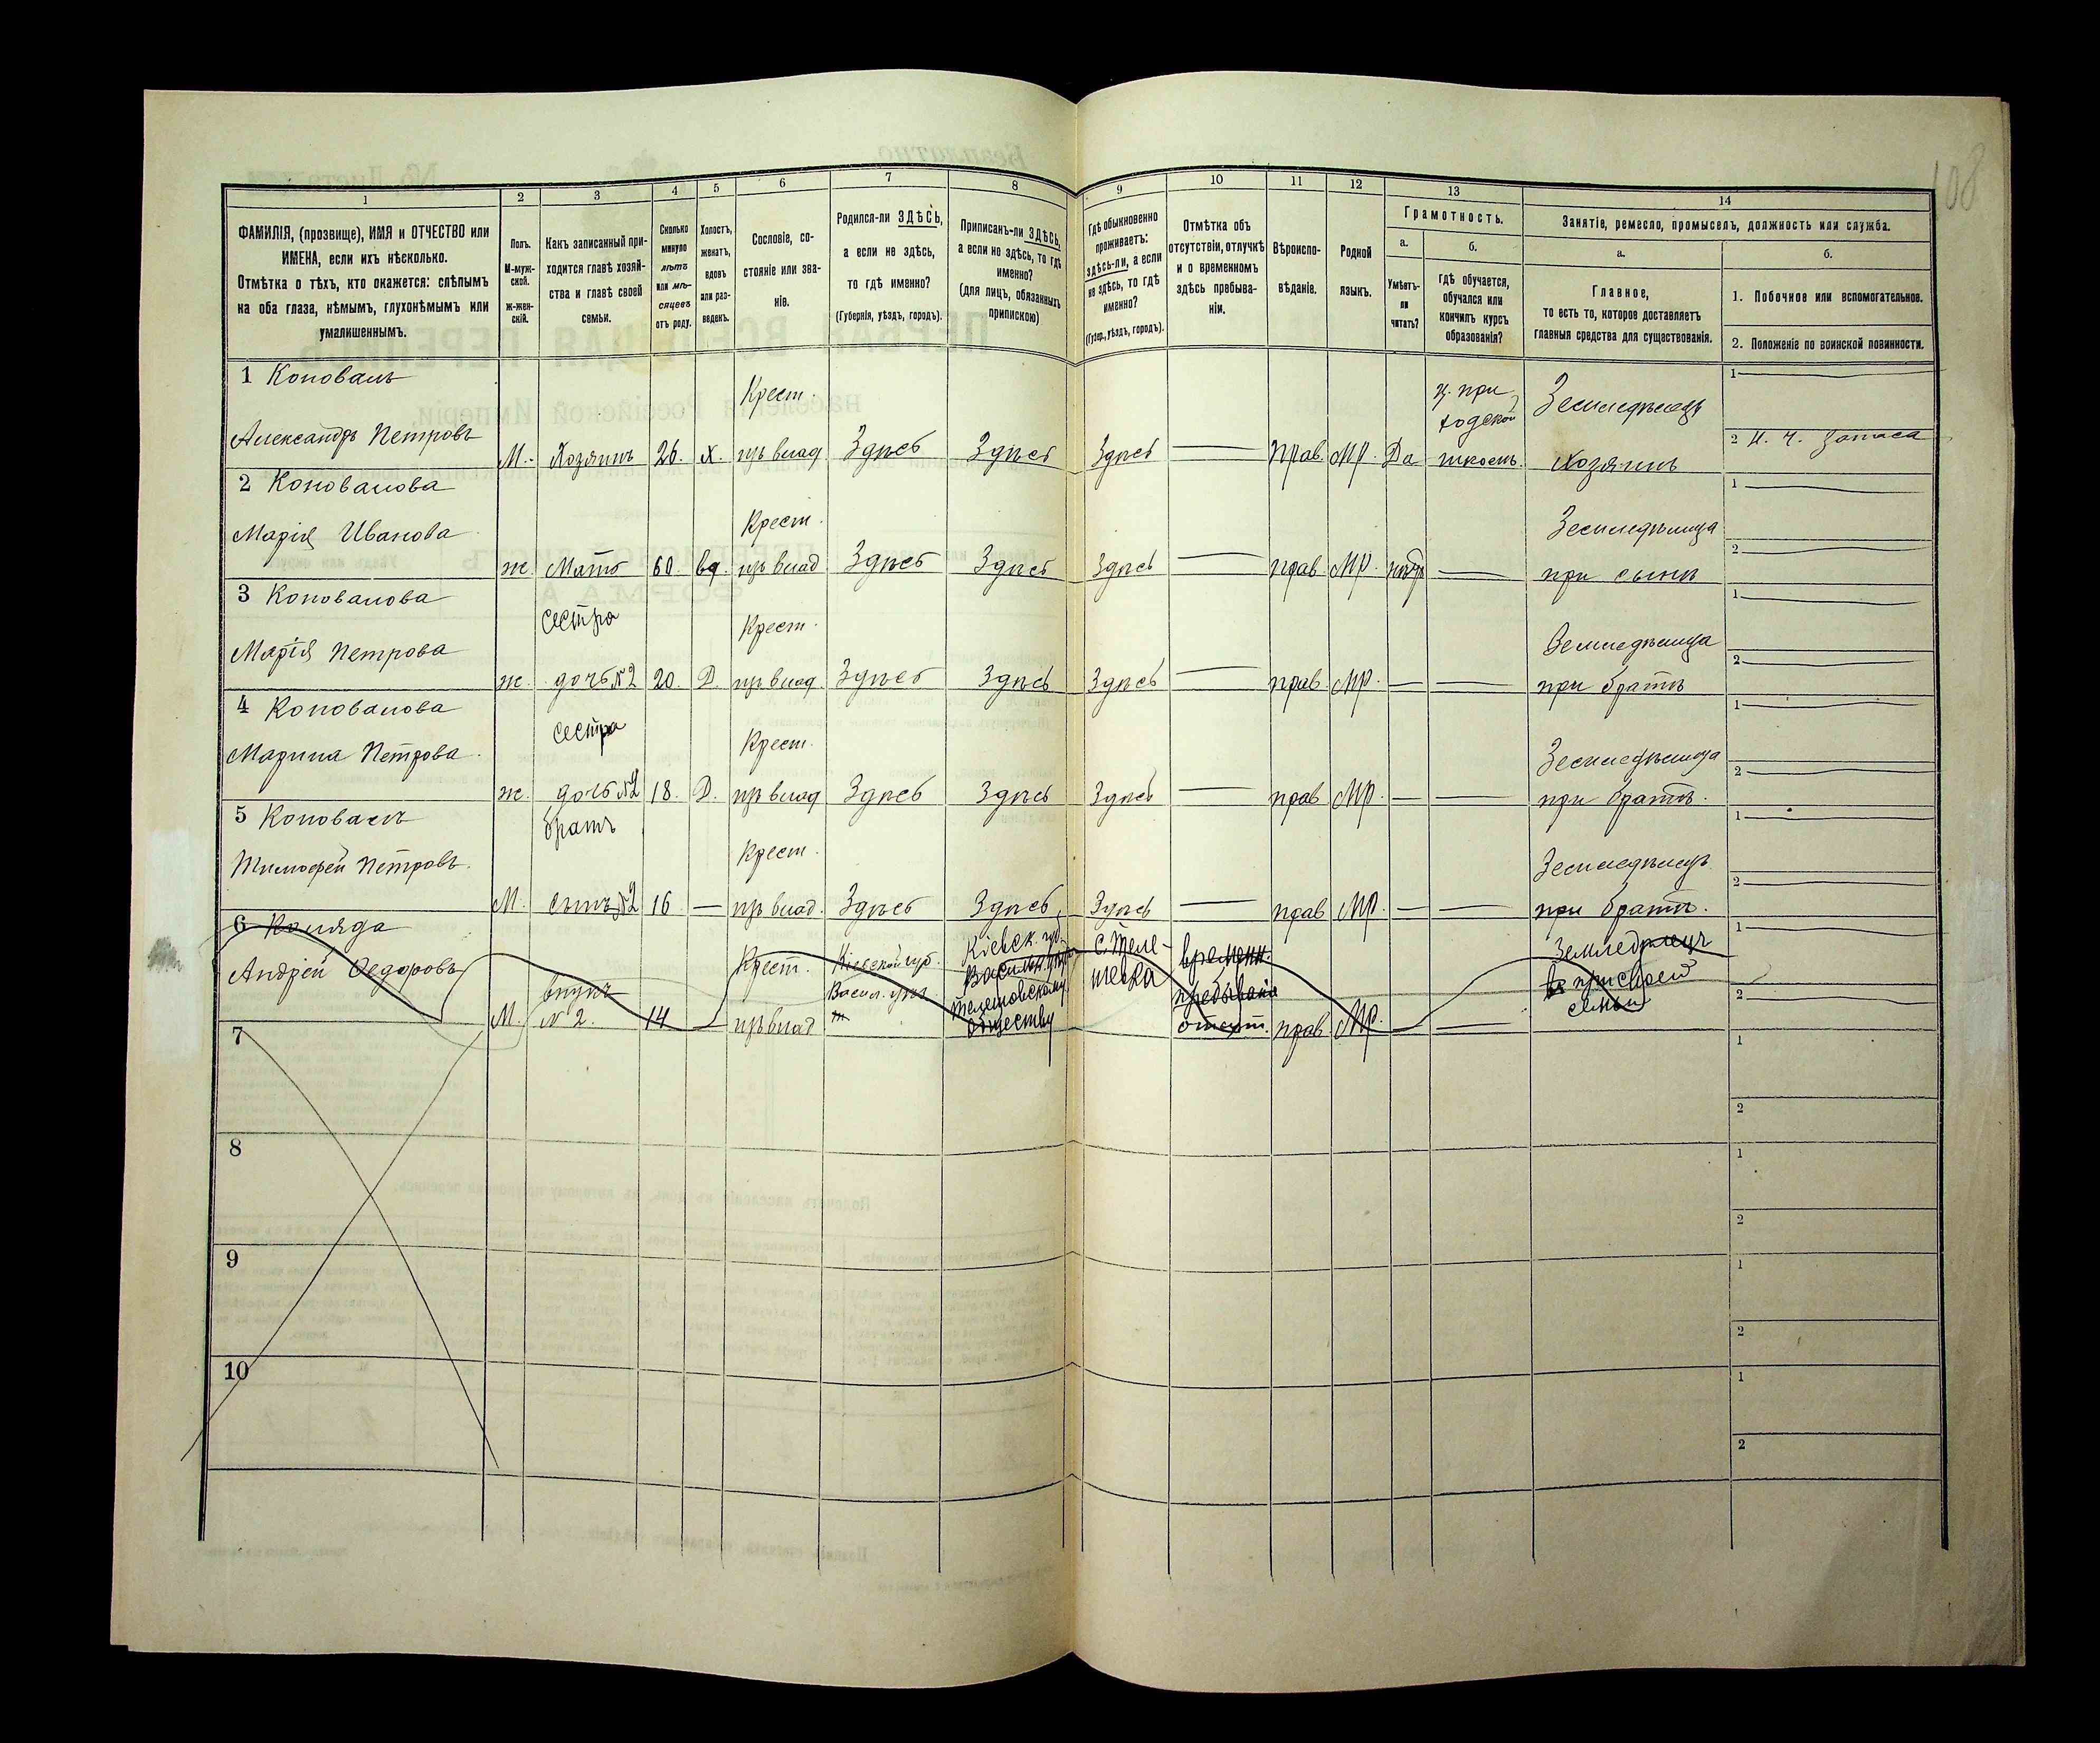 108
1
2
3
4
5
6
7
8
9
10
11
12
13
14
ФАМИЛІЯ, (прозвище), ИМЯ и ОТЧЕСТВО или
ИМЕНА, если ихъ нѣсколько.
Отмѣтка о тѣхъ, кто окажется: слѣпымъ
на оба глаза, нѣмымъ, глухонѣмымъ или
умалишеннымъ.
Полъ.
М-муж-
ской.
ж-жен-
скій.
Какъ записанный при-
ходится главѣ хозяй-
ства и главѣ своей
семьи.
Сколько
минуло
лѣтъ
или мѣ-
сяцевъ
отъ роду.
Холостъ,
женатъ,
вдовъ
или раз-
веденъ.
Сословіе, со-
стояніе или зва-
ніе.
Родился-ли ЗДѢСЬ,
а если не здѣсь,
то гдѣ именно?
(Губернія, уѣздъ, городъ).
Приписанъ-ли ЗДѢСЬ,
а если не здѣсь, то гдѣ
именно?
(для лицъ, обязанныхъ
припискою)
Гдѣ обыкновенно
проживаетъ:
здѣсь-ли, а если
не здѣсь, то гдѣ
именно?
(Губер., уѣздъ, городъ).
Отмѣтка объ
отсутствіи, отлучкѣ
и о временномъ
здѣсь пребыва-
ніи.
Вѣроиспо-
вѣданіе.
Родной
языкъ.
Грамотность.
а.
Умѣетъ-
ли
читать?
б.
гдѣ обучается,
обучался или
кончилъ курсъ
образованія?
Занятіе, ремесло, промыселъ, должность или служба.
а.
Главное,
то есть то, которое доставляетъ
главныя средства для существованія.
б.
1. Побочное или вспомогательное.
2. Положеніе по воинской повинности.
1 Коновалъ
Крест.
ц. при
ходской
Земледѣлецъ
1
Александръ Петровъ
М. Хозяинъ 26 х. пр влад Здѣсь Здѣсь Здѣсь — Прав. МР. Да школѣ. Хозяинъ
2 Н. Ч. Запаса
2 Коновалова
Крест.
Земледѣлица
1
Марія Иванова
ж Мать 60. вд. пр влад Здѣсь Здѣсь Здѣсь — прав МР. — при сынѣ
2
3 Коновалова
сестра
Крест.
Земледѣлица
1
Марія Петрова
ж. дочь №2 20. Д. пр влад. Здѣсь Здѣсь Здѣсь — прав. МР. — — при братѣ
2
4 Коновалова
сестра
Крест.
Земледѣлица
1
Марина Петрова.
ж. дочь №2 18. Д. пр влад Здѣсь Здѣсь Здѣсь — прав МР. — — при братѣ.
2
5 Коновалъ
братъ
Крест.
Земледѣлецъ
1
Тимофей Петровъ.
М. сынъ №2 16 — пр влад. Здѣсь Здѣсь, Здѣсь — прав МР. — — при братѣ.
2
6 Коляда
Андрей Ѳедоровъ
М. внукъ
№ 2. 14 — Крест.
пр влад
Кіевской губ.
Васил. уѣз
Кіевск. губ.
Васильк. уѣзд
Телешовскому
обществу
С. Теле-
шевка
временн.
пребываніе
прав. МР. — —
Земледѣлецъ
при своей
семьи
1
2
7
1
2
8
1
2
9
1
2
10
1
2